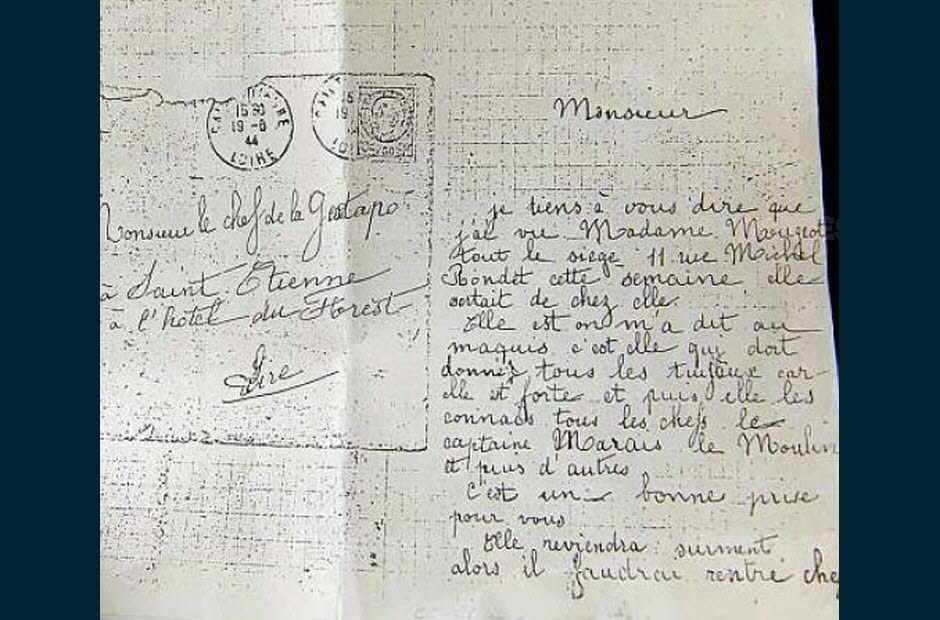 15
19-8
44
LOIRE
15
19
LOI
Monsieur le chef de la Gestapo
à Saint Etienne
à l'hotel du Forest
Loire
Monsieur
je tiens à vous dire que
j'ai vu Madame Mougeot
tout le siège 11 rue Michel
Rondet cette semaine elle
sortait de chez elle.
Elle est on m'a dit au
maquis c'est elle qui doit
donnéz tous les tuyaux car
elle est forte et puis elle les
connais tous les chefs le
captaine Marais le Moulin
et puis d'autres
C'est un bonne prise
pour vous
Elle reviendra surment
alors il faudrai rentré che